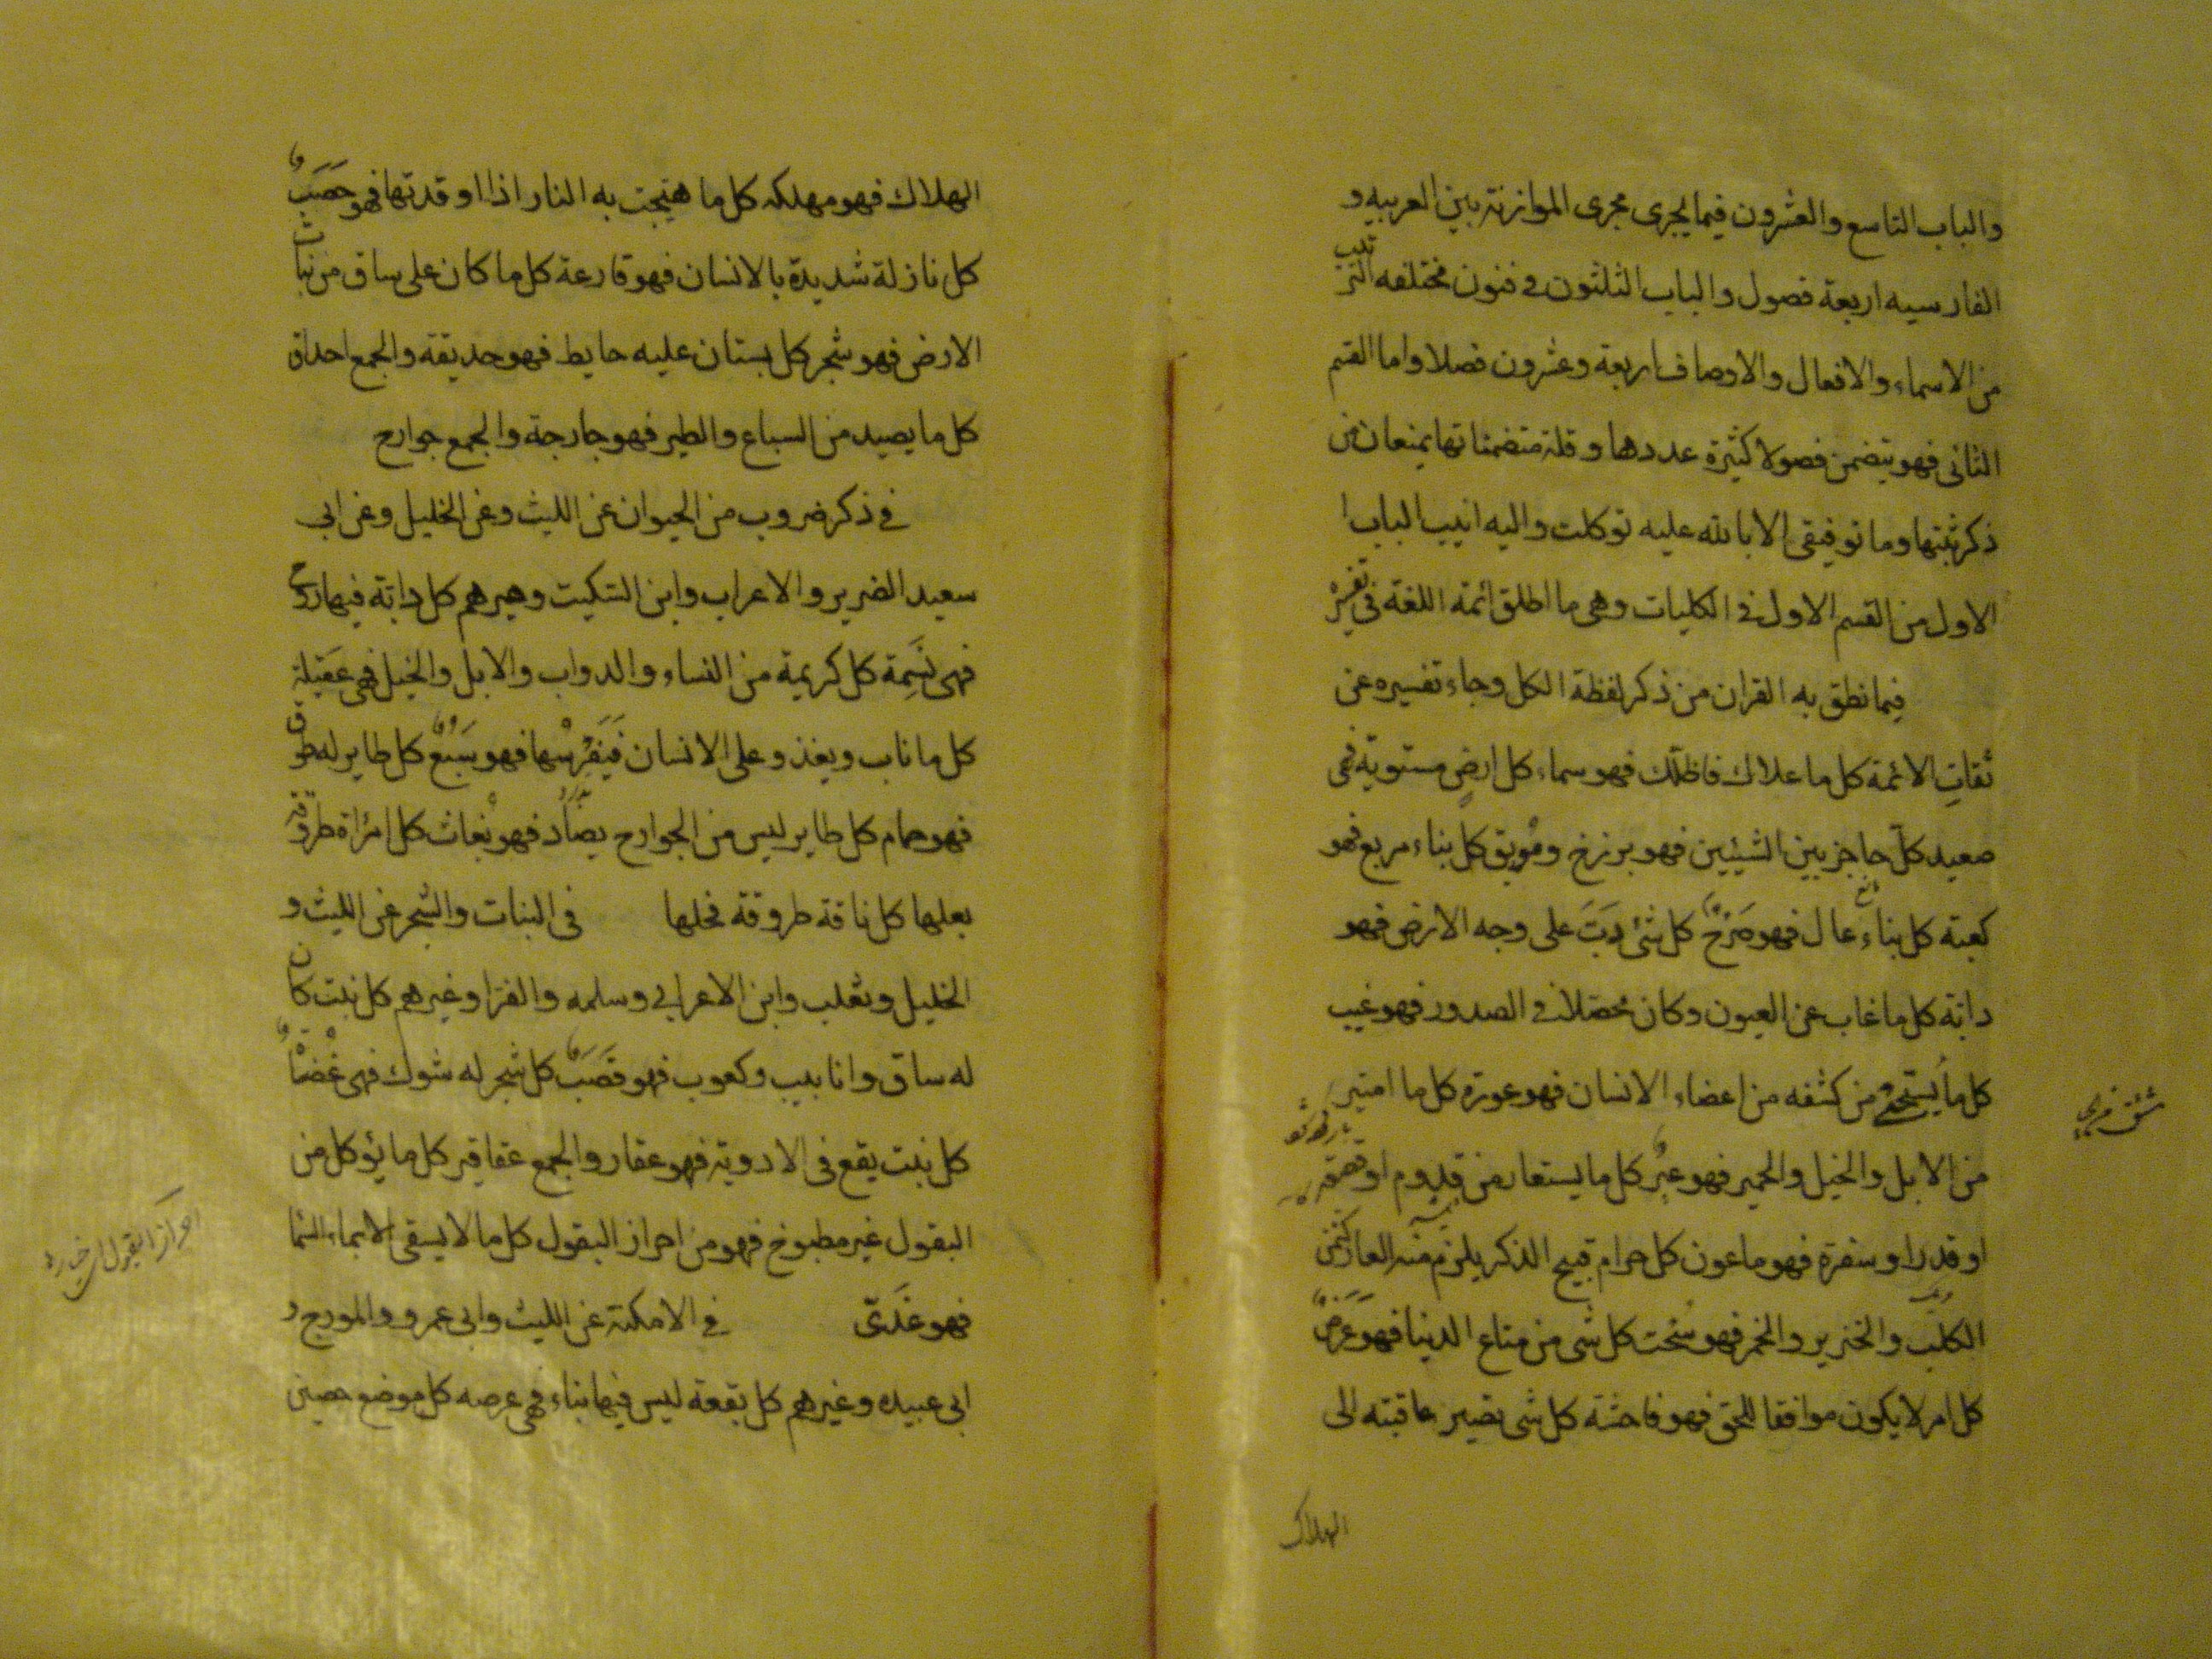 والباب التاسع والعشرون فيما يجرى مجرى الموازنة بين العربيه و
الفارسيه اربعة فصول والباب الثلثون فى فنون مختلفه الترتيب
من الاسماء والافعال والاوصاف اربعة وعشرون فصلا واما القسم
الثانى فهو يتضمن فصولا كثيرة عددها وقلة متضمناتها يمنعان من
ذكر ثبتها وما توفيقى الا بالله عليه توكلت واليه انيب الباب ا
الاول من القسم الاول فى الكليات وهى ما اطلق ائمة اللغة فى تفسيره
فيما نطق به القران من ذكر لفظة الكل وجاء تفسيره عن
ثقاتِ الائمة كل ما علاك فاظلّك فهو سماء كل ارضٍ مستوية فهى
صعيد كلّ حاجز بين الشيئين فهو برزخ وموبق كل بناء مربع فهو
كعبة كل بناء عال فهو صَرْحٌ كل شئ دَبَّ على وجه الارض فهو
دابّة كل ما غاب عن العيون وكان محصّلا فى الصدور فهو غيب
كل ما يُستحيى من كشفه من اعضاء الانسان فهو عورة كل ما امتير
من الابل والخيل والحمير فهو عيرٌ كل ما يستعار من قدوم او
او قدر او سفرة فهو ماعون كل حرام قبيح الذكر يلزم منه العار كثمن
الكلب والخنزير والخمر فهو سُحت كل شى من متاع الدنيا فهو عَرَضٌ
كل امر لا يكون موافقا للحق فهو فاحشة كل شى تصير عاقبته الى
الهلاك
الهلاك فهو مهلكه كل ما هيّجت به النار اذا اوقدتها فهو حَصَبٌ
كل نازلة شديدة بالانسان فهو قارعة كل ما كان على ساق من نبات
الارض فهو شجر كل بستان عليه حايط فهو حديقة والجمع احداق
كل ما يصيد من السباع والطير فهو جارحة والجمع جوارح
فى ذكر ضروب من الحيوان عن الليث وعن الخليل وعن ابى
سعيد الضرير والاعراب وابن السّكيت وغيرهم كل دابّة فيها روح
فهى نَسَمة كل كريمة من النساء والدواب والابل والخيل فهى عَقيلة
كل ما ناب ويغذو على الانسان فَيَفْرِسُها فهو سَبُعٌ كل طاير له طوق
فهو حمام كل طاير ليس من الجوارح يصاد فهو بُغاث كل امرأة طروقة
بعلها كل ناقة طروقة فحلها فى النبات والشجر عن الليث و
الخليل وثعلب وابن الاعرابى وسلمه والفرّا وغيرهم كل نبت كان
له ساق وانابيب وكعوب فهو قَصَبٌ كل شجر له شوك فهى
كل نبت يقع فى الادوية فهو عقار والجمع عقاقير كل ما يؤكل من
البقول غير مطبوخ فهو من احراز البقول كل ما لا يسقى الا بماء السّما
فهو عَذَىّ فى الامكنة عن الليث وابى عمرو والمورج و
ابى عبيده وغيرهم كل بقعة ليس فيها بناء فهى عرصه كل موضع حصين